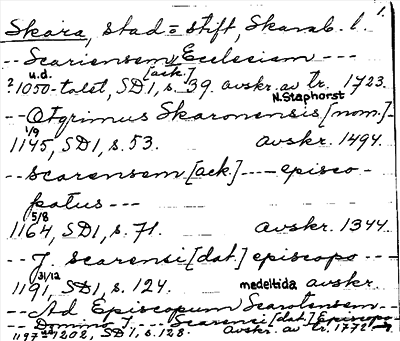 1.
Skara, stad = stift, Skarab. l.
-- Scariensem Ecclesiam ---
u.d. [ack.]
? 1050-talet, SD1, s. 39. avskr. av tr. 1723.
N. Staphorst
-- Otgrimus Skaronensis [nom.] -
1/9
1145, SD1, s. 53. avskr. 1494.
-- scarensem [ack.] ---- episco-
patus ---
5/8
1164, SD1, s. 71. avskr. 1344.
-- J. scarensi [dat.] episcopo --
31/12
1191, SD1, s. 124. medeltida avskr.
-- Ad Episcopum Scarotensem --
-- Domino J. --- Scarensi [dat.] Episcopo --
1197 1202, SD1, s. 128. avskr. av tr. 1772 →